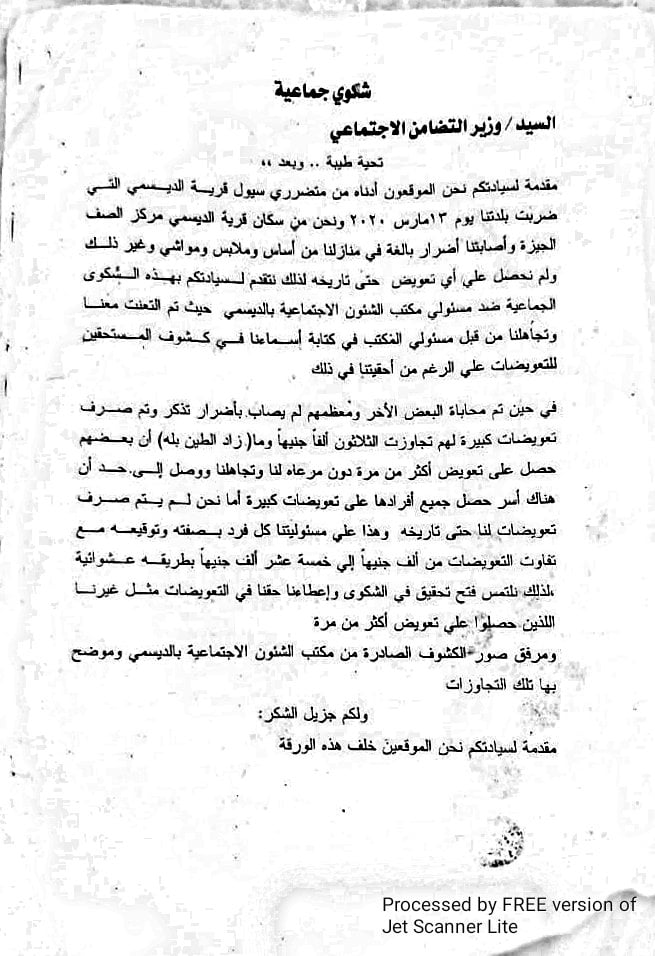 شكوي جماعية
السيد/ وزير التضامن الاجتماعي
تحية طيبة .. وبعد ،،
مقدمة لسيادتكم نحن الموقعون أدناه من متضرري سيول قرية الديسمي التي
ضربت بلدتنا يوم ١٣مارس ٢٠٢٠ ونحن من سكان قرية الديسمي مركز الصف
الجيزة وأصابتنا أضرار بالغة في منازلنا من أساس وملابس ومواشي وغير ذلك
ولم نحصل علي أي تعويض حتى تاريخه لذلك نتقدم لسيادتكم بهذه الشكوى
الجماعية ضد مسئولي مكتب الشئون الاجتماعية بالديسمي حيث تم التعنت معنا
وتجاهلنا من قبل مسئولي المكتب في كتابة أسماءنا في كشوف المستحقين
للتعويضات علي الرغم من أحقيتنا في ذلك
في حين تم محاباة البعض الأخر ومعظمهم لم يصاب بأضرار تذكر وتم صرف
تعويضات كبيرة لهم تجاوزت الثلاثون ألفاً جنيهاً وما( زاد الطين بله) أن بعضهم
حصل على تعويض أكثر من مرة دون مرعاه لنا وتجاهلنا ووصل إلى حد أن
هناك أسر حصل جميع أفرادها على تعويضات كبيرة أما نحن لم يتم صرف
تعويضات لنا حتى تاريخه وهذا علي مسئوليتنا كل فرد بصفته وتوقيعه مع
تفاوت التعويضات من ألف جنيهاً إلي خمسة عشر ألف جنيهاً بطريقه عشوائية
،لذلك نلتمس فتح تحقيق في الشكوى وإعطاءنا حقنا في التعويضات مثل غيرنا
اللذين حصلوا علي تعويض أكثر من مرة
ومرفق صور الكشوف الصادرة من مكتب الشئون الاجتماعية بالديسمي وموضح
بها تلك التجاوزات
ولكم جزيل الشكر:
مقدمة لسيادتكم نحن الموقعين خلف هذه الورقة
Processed by FREE version of
Jet Scanner Lite